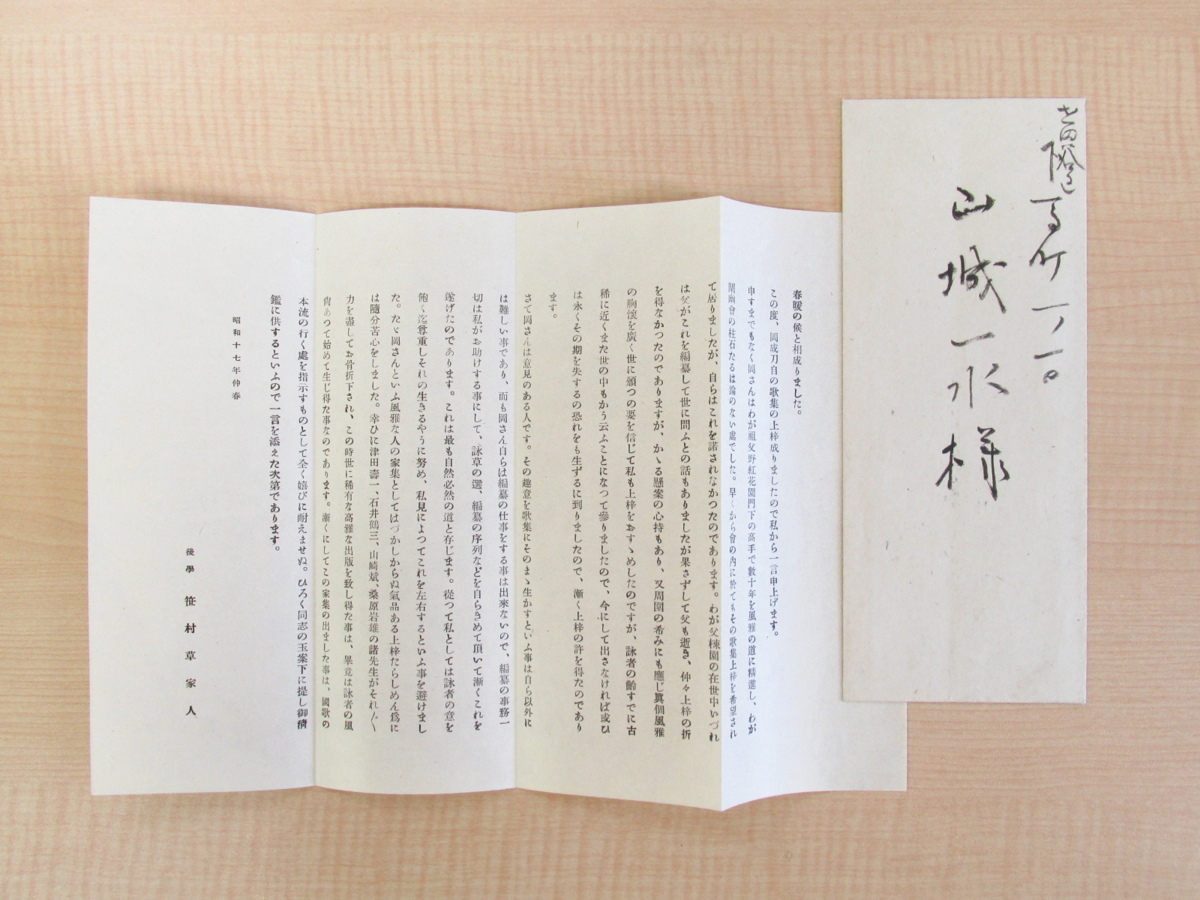 春暖の候と相成りました。
この度、岡成刀自の歌集の上梓成りましたので私から一言申上げます。
申すまでもなく岡さんはわが祖父野紅花園門下の高手で數十年を風雅の道に精進し、わが
蘭幽會の柱石たるは論のない處でした。早くから會の内に於てもその歌集上梓を希望され
て居りましたが、自らはこれを諾されなかつたのであります。わが父棟園の在世中いづれ
は父がこれを編纂して世に問ふとの話もありましたが果さずして父も逝き、仲々上梓の折
を得なかつたのでありますが、かゝる懸案の心持もあり、又周圍の希みにも應じ眞個風雅
の胸懐を廣く世に頒つの要を信じて私も上梓をおすゝめしたのですが、詠者の齢すでに古
稀に近くまた世の中もかう云ふことになつて參りましたので、今にして出さなければ或ひ
は永くその期を失するの恐れをも生ずるに到りましたので、漸く上梓の許を得たのであり
ます。
さて岡さんは意見のある人です。その趣意を歌集にそのまゝ生かすといふ事は自ら以外に
は難しい事であり、而も岡さん自らは編纂の仕事をする事は出來ないので、編纂の事務一
切は私がお助けする事にして、詠草の選、編纂の序列などを自らきめて頂いて漸くこれを
遂げたのであります。これは最も自然必然の道と存じます。從つて私としては詠者の意を
飽く迄尊重しそれの生きるやうに努め、私見によつてこれを左右するといふ事を避けまし
た。たゞ岡さんといふ風雅な人の家集としてはづかしからぬ氣品ある上梓たらしめん爲に
は隨分苦心をしました。幸ひに津田壽一、石井鶴三、山崎斌、桑原岩雄の諸先生がそれ〴〵
力を盡してお骨折下され、この時世に稀有な高雅な出版を致し得た事は、畢竟は詠者の風
貴あつて始めて生じ得た事なのであります。漸くにしてこの家集の出ました事は、國歌の
本流の行く處を指示すものとして全く嬉びに耐えませぬ。ひろく同志の玉案下に提し御清
鑑に供するといふので一言を添えた次第であります。
昭和十七年仲春
後學 笹村草家人
山城一水様